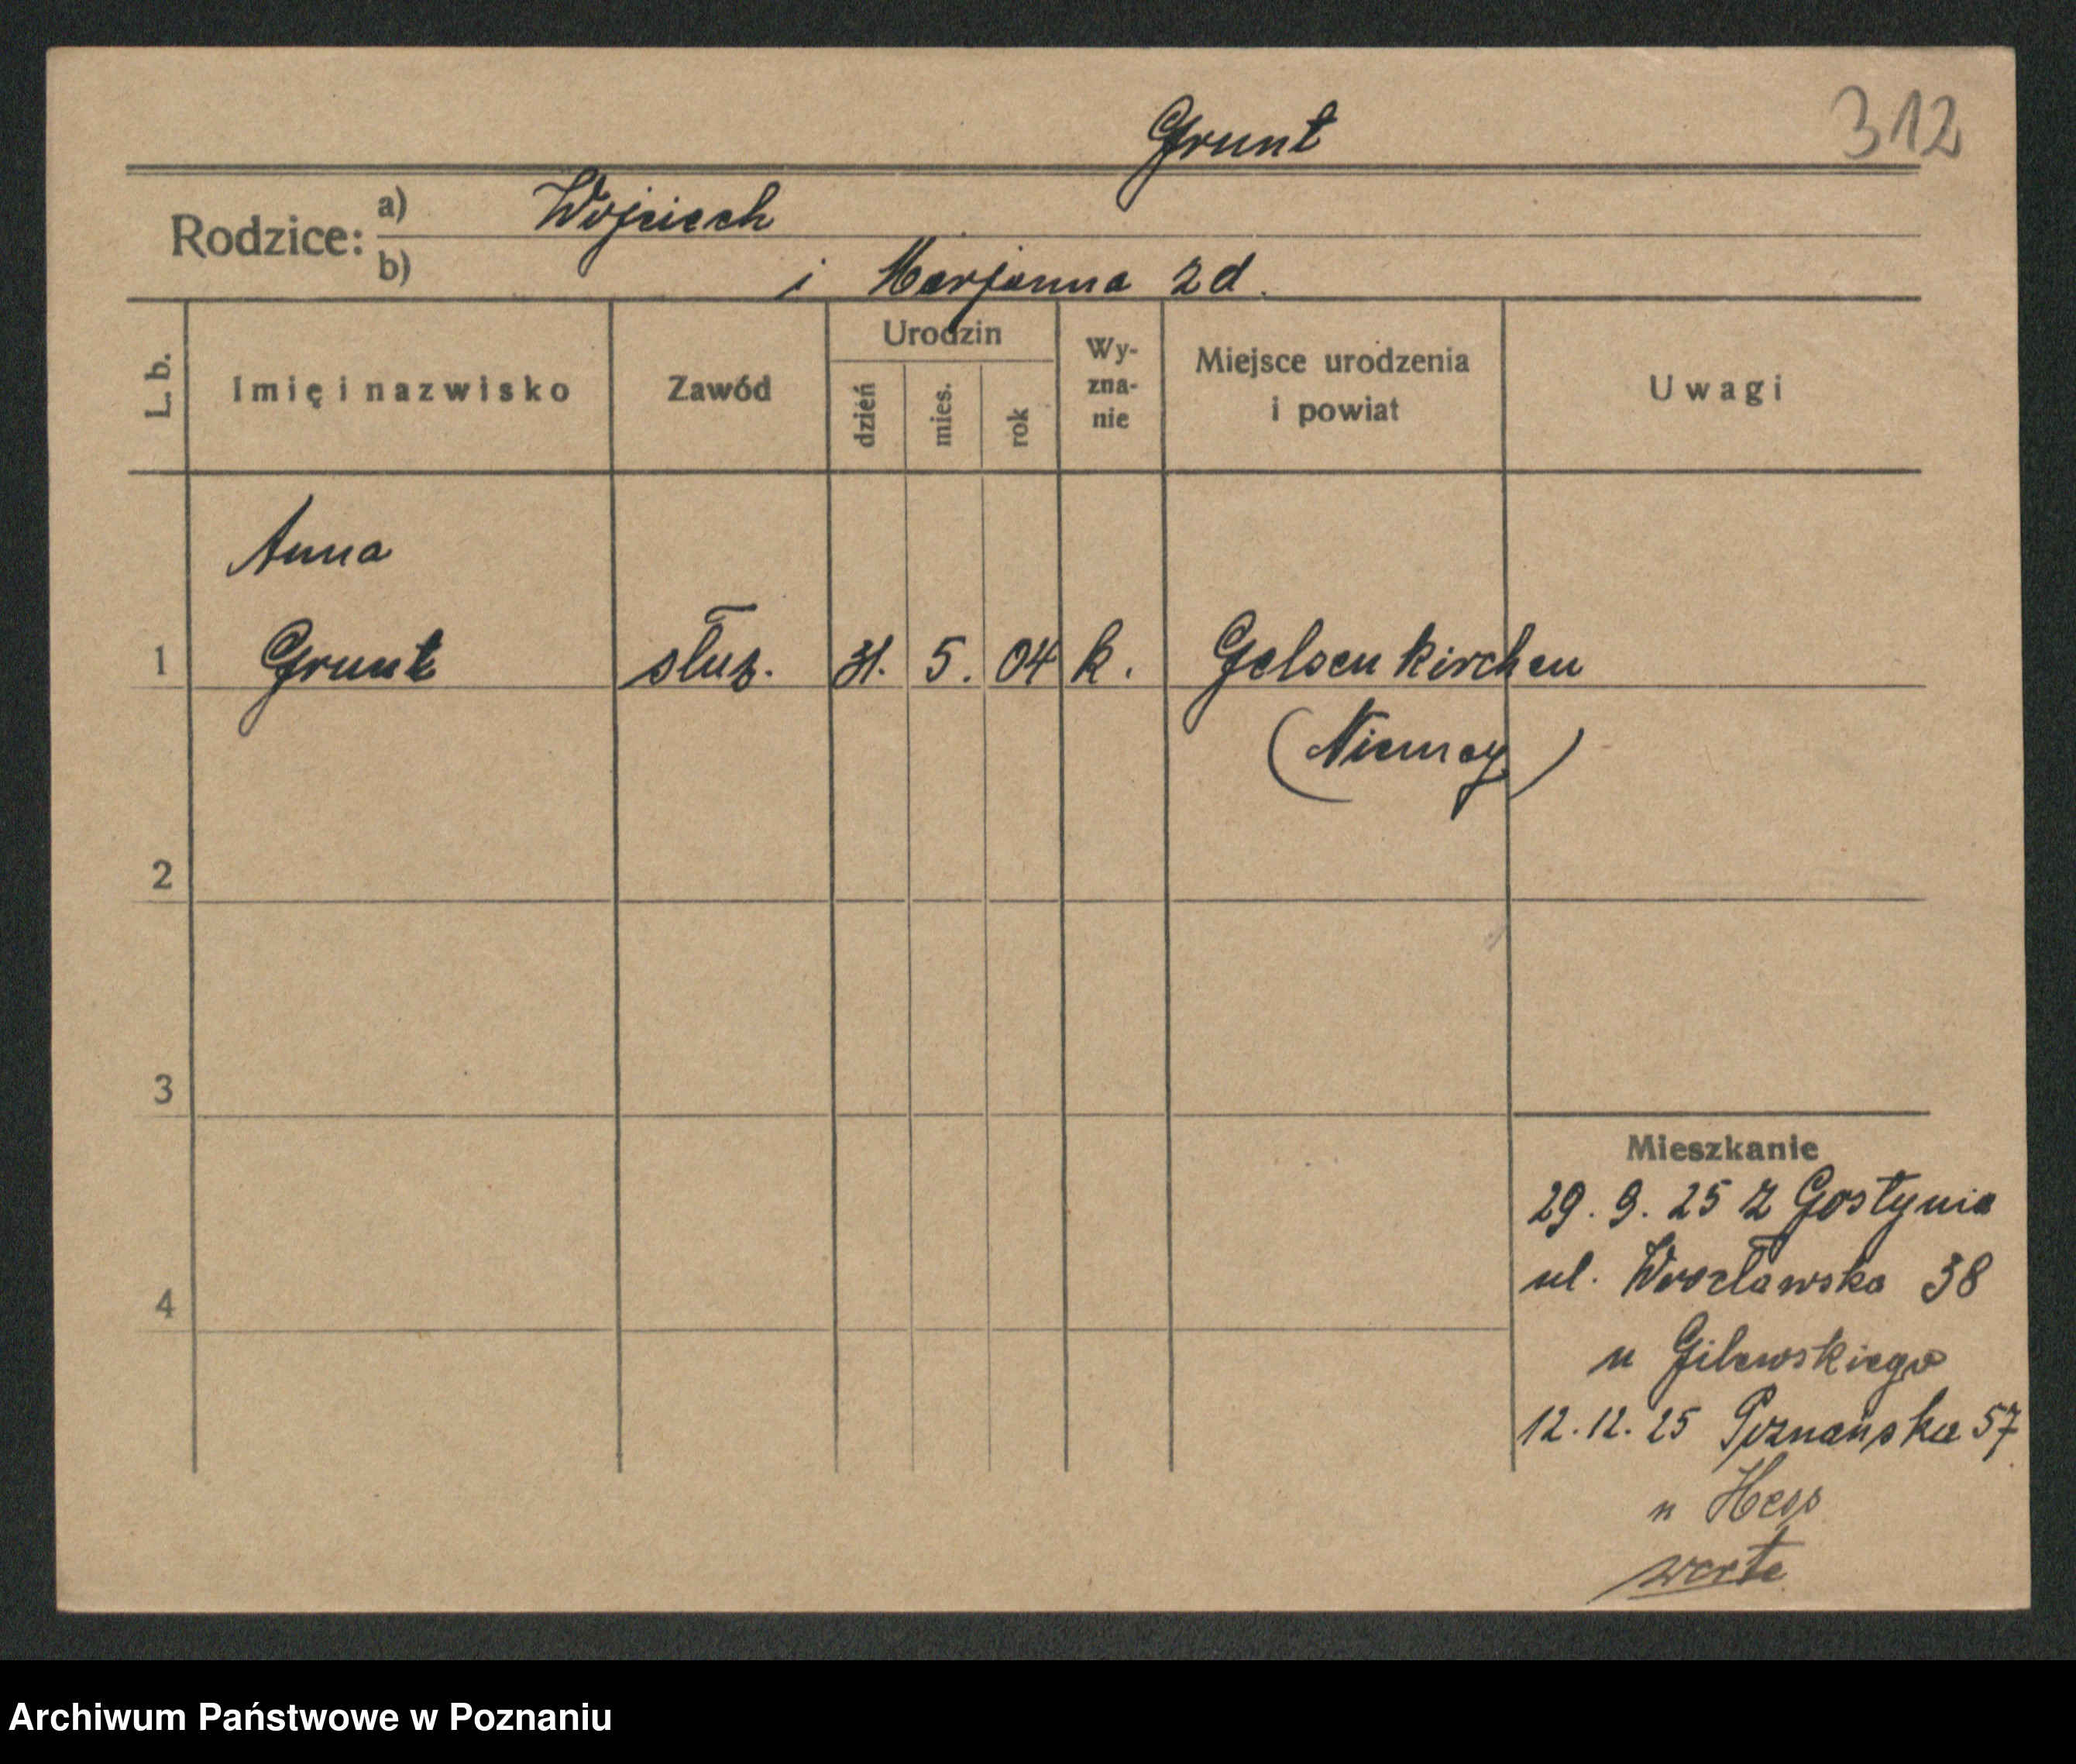 Grunt
312
Rodzice: a) Wojciech
b) i Marjanna zd.
L. b.
Imię i nazwisko
Zawód
Urodzin
dzień
mies.
rok
Wy-
zna-
nie
Miejsce urodzenia
i powiat
Uwagi
Anna
1 Grunt służ. 31. 5. 04 k. Gelsenkirchen
(Niemcy)
2
3
4
Mieszkanie
29. 9. 25 z Gostynia
ul. Wrocławska 38
u Gilewskiego
12. 12. 25 Poznańska 57
u
verte
Archiwum Państwowe w Poznaniu